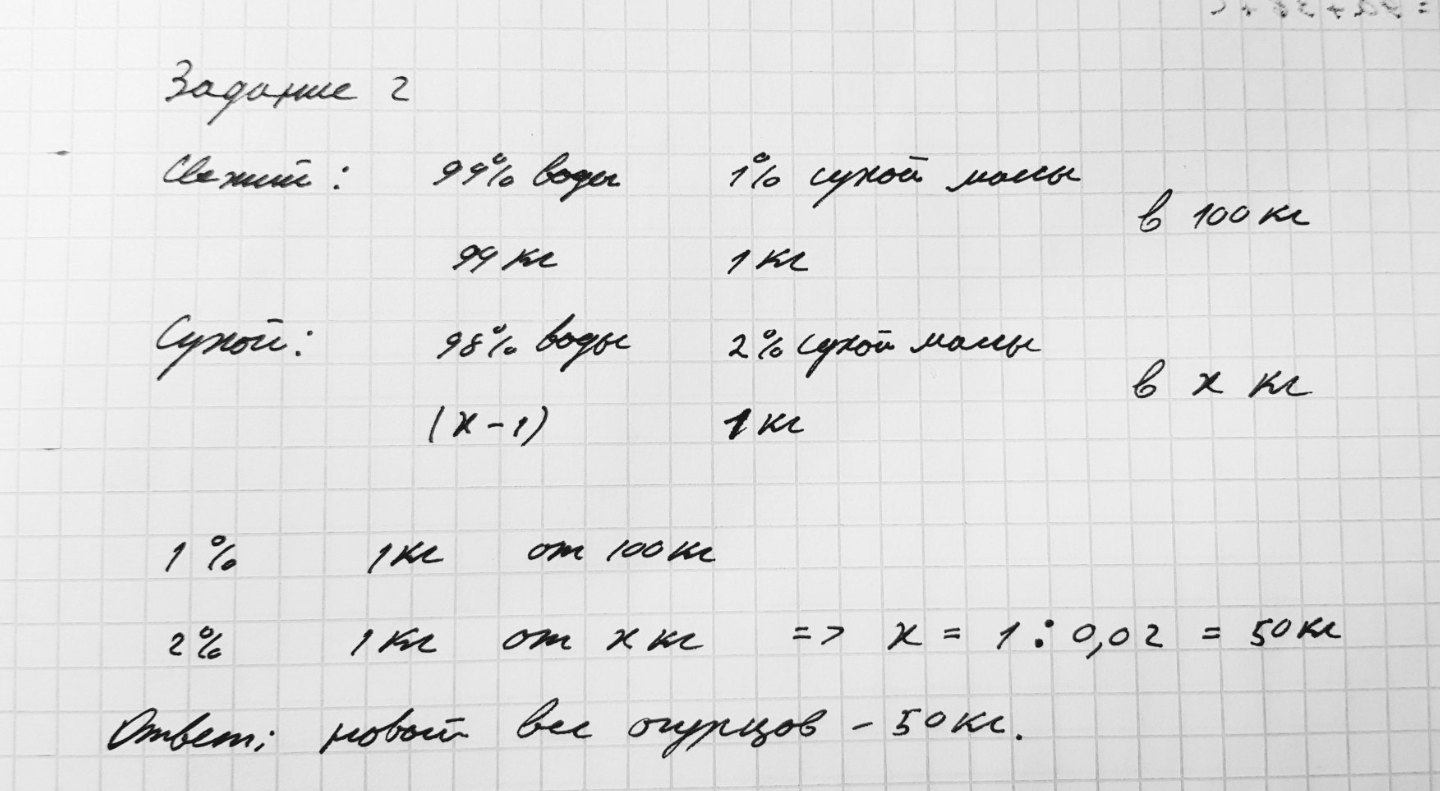 Задание 2
Свежий: 99% воды 1% сухой массы
в 100 кг
99 кг 1 кг
Сухой: 98% воды 2% сухой массы
в х кг
(х - 1) 1 кг
1% 1 кг от 100 кг
2% 1 кг от х кг => х = 1 : 0,02 = 50 кг
Ответ: новый вес огурцов - 50 кг.